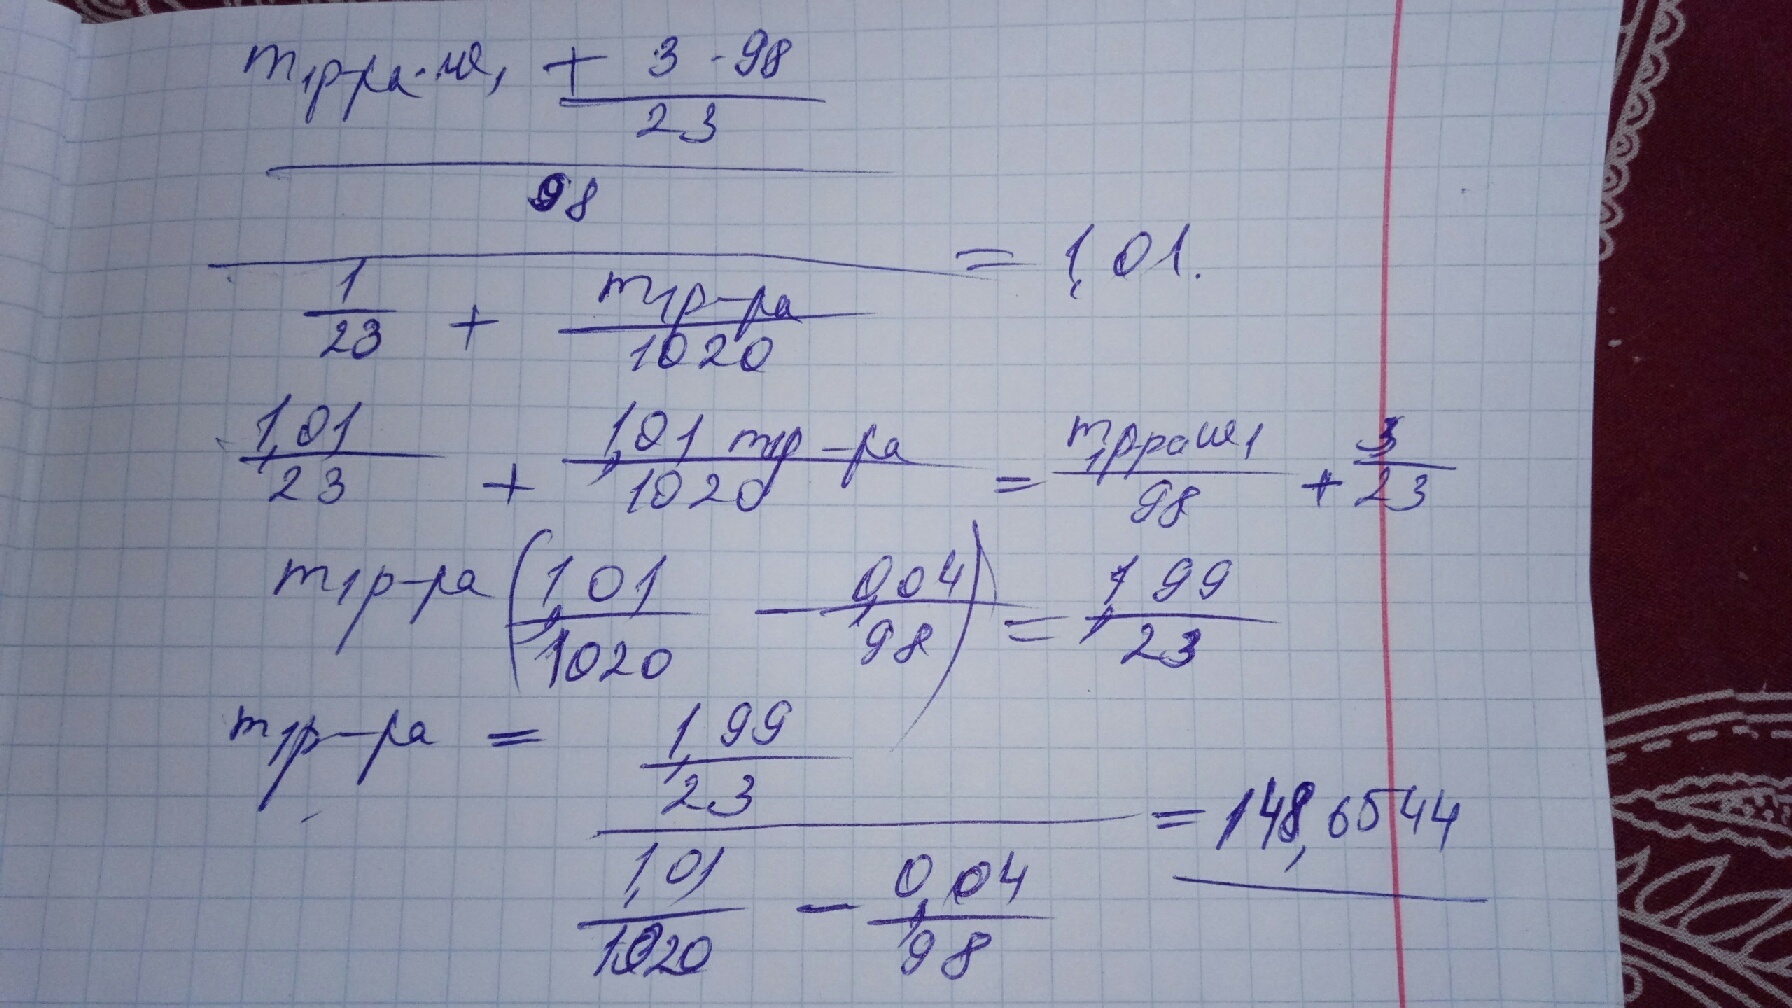 m1р-ра·ω1 + 3·98
23
98
1/23 + m1р-ра/1020 = 1,01.
1,01/23 + 1,01 m1р-ра/1020 = m1р-раω1/98 + 3/23
m1р-ра (1,01/1020 - 0,04/98) = 1,99/23
m1р-ра = 1,99/23
1,01/1020 - 0,04/98 = 148,6544